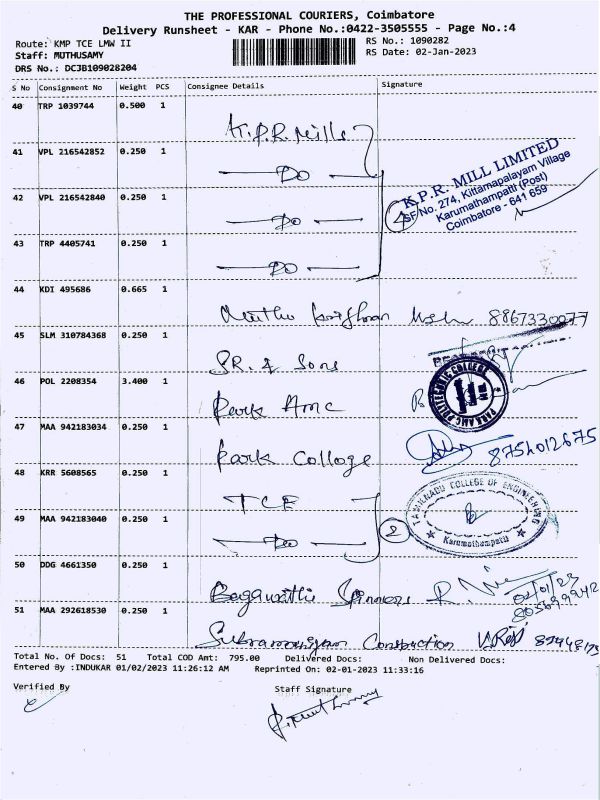 THE PROFESSIONAL COURIERS, Coimbatore
Delivery Runsheet - KAR - Phone No.:0422-3505555 - Page No.:4
Route: KMP TCE LMW II
RS No.: 1090282
Staff: MUTHUSAMY
RS Date: 02-Jan-2023
DRS No.: DCJB109028204
S No Consignment No Weight PCS Consignee Details Signature
40 TRP 1039744 0.500 1
K.P.R. Mills
41 VPL 216542852 0.250 1
DO
K.P.R. MILL LIMITED
SF No. 274, Kittampalayam Village
Karumathampatti (Post)
Coimbatore - 641 659
42 VPL 216542840 0.250 1
DO
4
43 TRP 4405741 0.250 1
DO
44 KDI 495686 0.665 1
8867330077
45 SLM 310784368 0.250 1
SR. & Sons
46 POL 2208354 3.400 1
Park AMC
PARK AMC POLYTECHNIC COLLEGE
47 MAA 942183034 0.250 1
Park College
8754012675
48 KRR 5608565 0.250 1
TCE
TAMILNADU COLLEGE OF ENGINEERING
Karumathampatti
49 MAA 942183040 0.250 1
DO
2
50 DDG 4661350 0.250 1
Spinners
02/01/23
51 MAA 292618530 0.250 1
Subramaniyam Construction
Total No. Of Docs: 51 Total COD Amt: 795.00 Delivered Docs: Non Delivered Docs:
Entered By :INDUKAR 01/02/2023 11:26:12 AM Reprinted On: 02-01-2023 11:33:16
Verified By Staff Signature